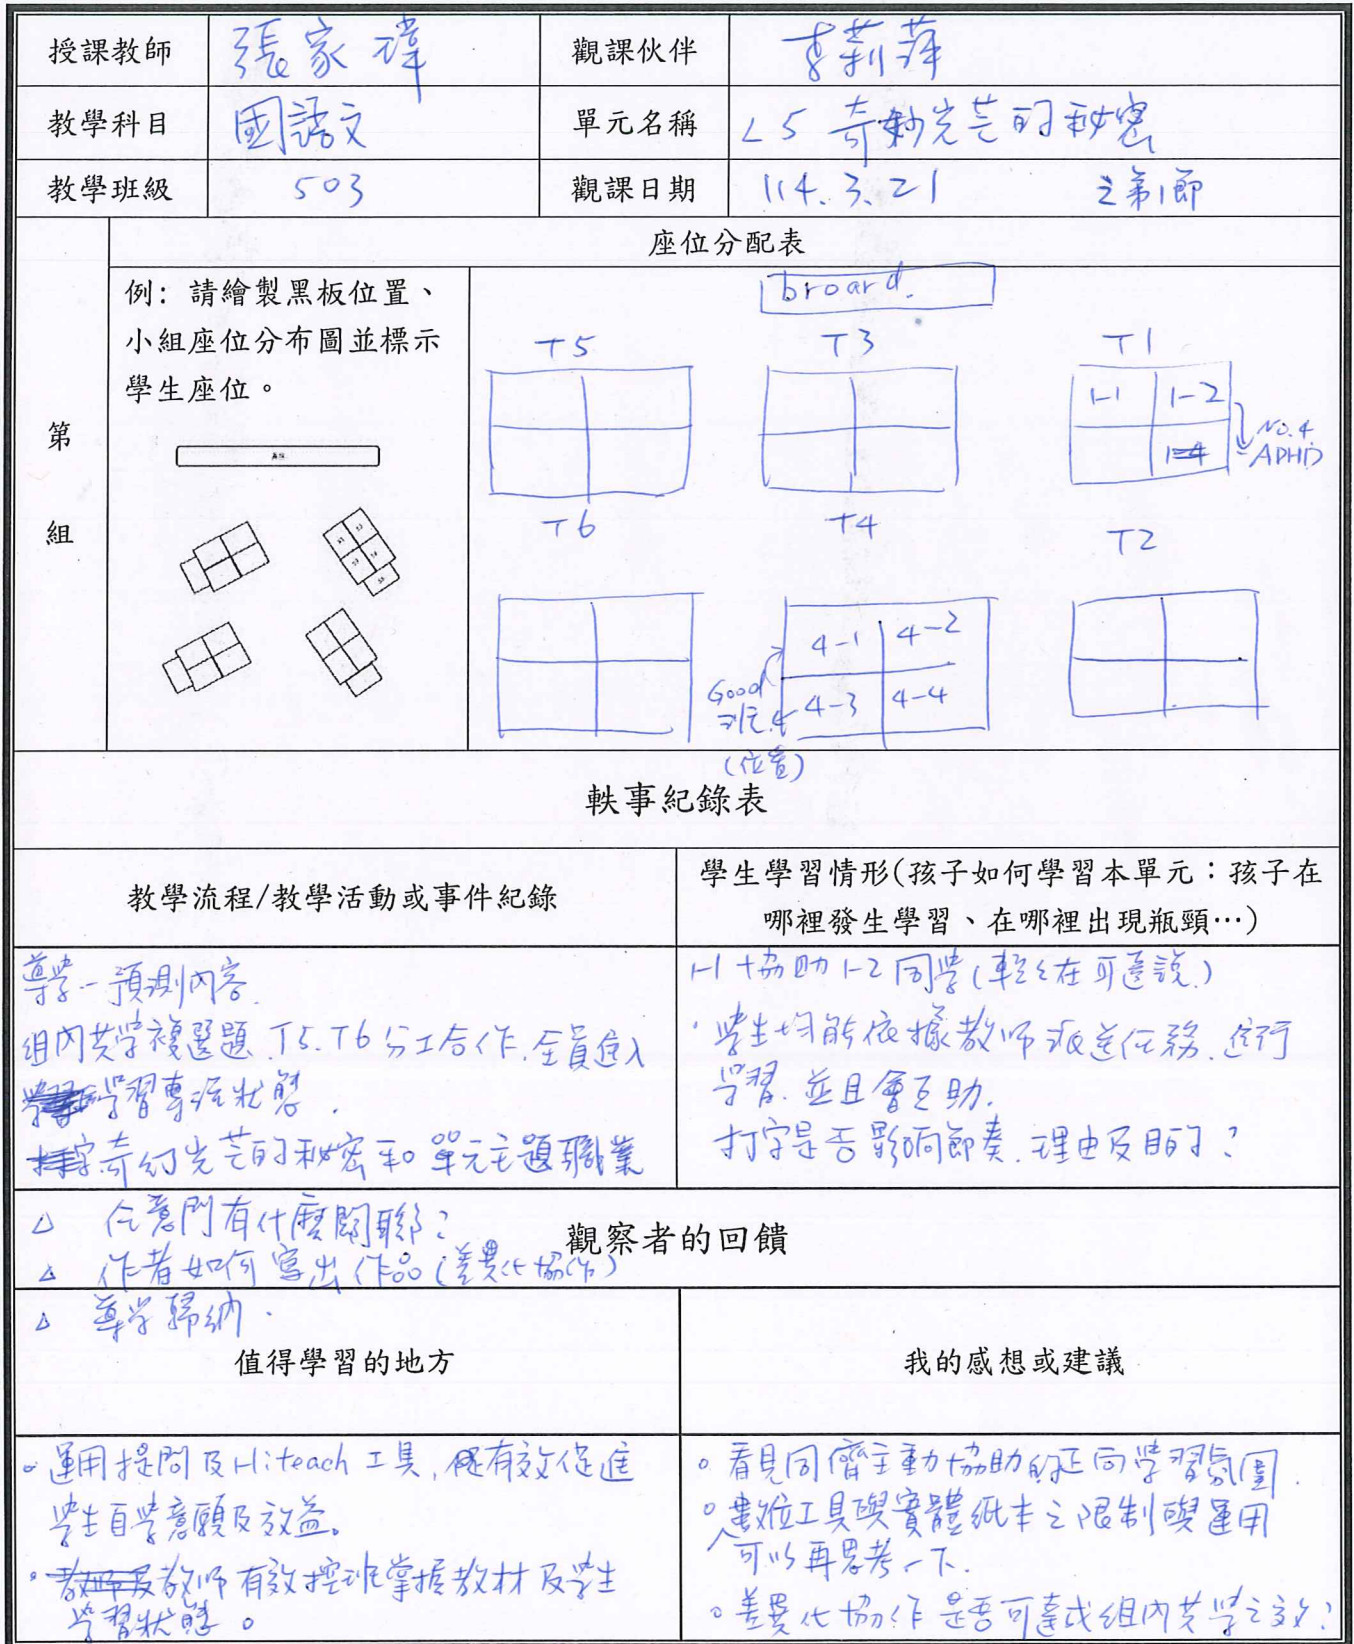 授課教師 張家瑋 觀課伙伴 李莉萍
教學科目 國語文 單元名稱 L5 奇妙光芒的秘密
教學班級 503 觀課日期 114.3.21 之第1節
座位分配表
第
組
例：請繪製黑板位置、
小組座位分布圖並標示
學生座位。
broard.
T5 T3 T1
1-1 1-2
1-4
No.4
ADHD
T6 T4 T2
4-1 4-2
4-3 4-4
Good
(位置)
軼事紀錄表
教學流程/教學活動或事件紀錄
學生學習情形(孩子如何學習本單元：孩子在
哪裡發生學習、在哪裡出現瓶頸…)
導學-預測內容.
組內共學複選題.T5.T6分工合作.全員進入
學習專注狀態.
奇幻光芒的秘密和單元主題職業
△ 任意門有什麼關聯？
△ 作者如何寫出作品(差異化協作)
△ 導學歸納.
1-1協助1-2同學(輕輕在耳邊說.)
·學生均能依據教師派送任務.進行
學習.並且會互助.
打字是否影响節奏.理由及目的？
觀察者的回饋
值得學習的地方
我的感想或建議
。運用提問及Hiteach工具,有效促進
學生自學意願及效益。
·教師有效控班掌握教材及學生
學習狀態。
。看見同儕主動協助的正向學習氛圍.
。數位工具與實體紙本之限制與運用
可以再思考一下.
。差異化協作是否可達成組內共學之效？